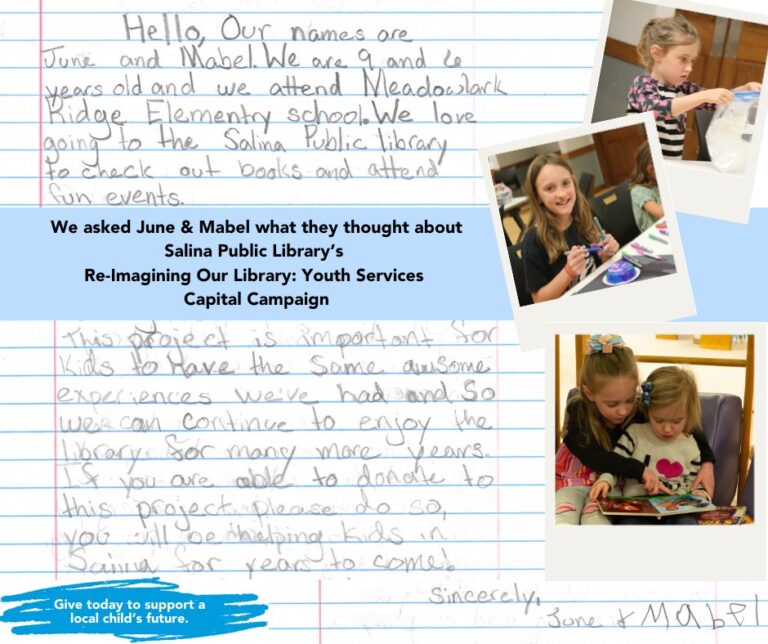 Hello, Our names are
June and Mabel. We are 9 and 6
years old and we attend Meadowlark
Ridge Elementry school. We love
going to the Salina Public library
to check out books and attend
fun events.
We asked June & Mabel what they thought about
Salina Public Library's
Re-Imagining Our Library: Youth Services
Capital Campaign
This project is important for
kids to Have the same awsome
experiences we've had and So
we can continue to enjoy the
library for many more years.
If you are able to donate to
this project please do so,
you will be helping kids in
Salina for years to come!
Sincerely,
June & Mabel
Give today to support a
local child's future.